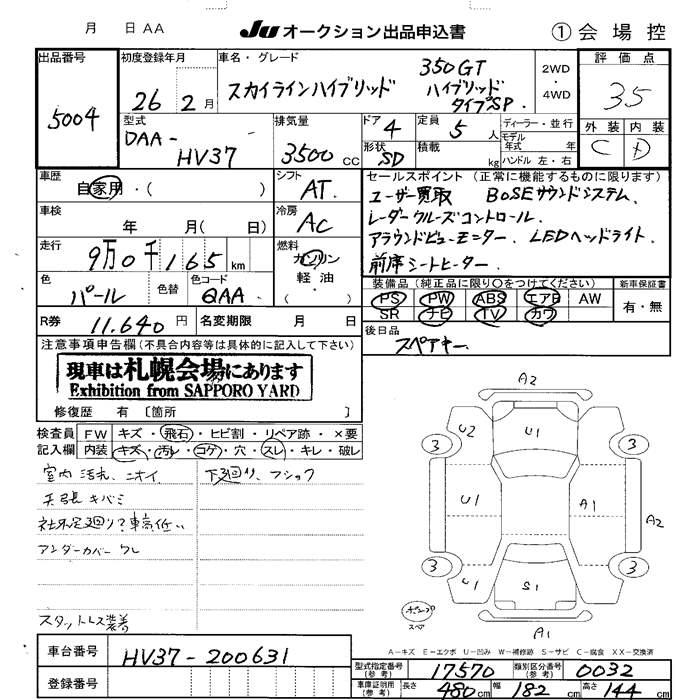 月 日 AA JU オークション出品申込書 ① 会場控
出品番号 5004
初度登録年月 26 2月
車名・グレード スカイラインハイブリッド 350GT ハイブリッド タイプSP
2WD ・ 4WD
評価点 3.5
外装 C 内装 D
型式 DAA-HV37
排気量 3500 CC
ドア 4
形状 SD
定員 5 人
積載 kg
ディーラー・並行
モデル年式 年
ハンドル 左・右
車歴 自家用・( )
シフト AT
車検 年 月( 日)
冷房 AC
走行 9万0千165 km
燃料 ガソリン 軽油 ( )
色 パール 色替
色コード QAA
R券 11,640 円
名変期限 月 日
セールスポイント (正常に機能するものに限ります)
ユーザー買取 BOSEサウンドシステム、
レーダークルーズコントロール、
アラウンドビューモニター、LEDヘッドライト、
前席シートヒーター、
装備品(純正品に限り○をつけてください)
PS PW ABS エアB AW
SR ナビ TV カワ
新車保証書 有・無
後日品
スペアキー、
注意事項申告欄(不具合内容等は具体的に記入して下さい)
現車は札幌会場にあります
Exhibition from SAPPORO YARD
修復歴 有 〔箇所 〕
検査員記入欄
FW キズ・飛石・ヒビ割・リペア跡・×要
内装 キズ・汚レ・コゲ・穴・スレ・キレ・破レ
室内汚れ、ニオイ
天張キバミ
社外足廻り?車高低い
アンダーカバーワレ
スタットレス装着
下廻り、フショク
A2
U2 U1
3 3
U1 A1 A2
3 3
U1 S1
A1
スペア
A-キズ E-エクボ U-凹み W-補修跡 S-サビ C-腐食 XX-交換済
車台番号 HV37-200631
登録番号
型式指定番号(参考) 17570
類別区分番号(参考) 0032
車庫証明用(参考) 長さ 480cm 幅 182cm 高さ 144cm